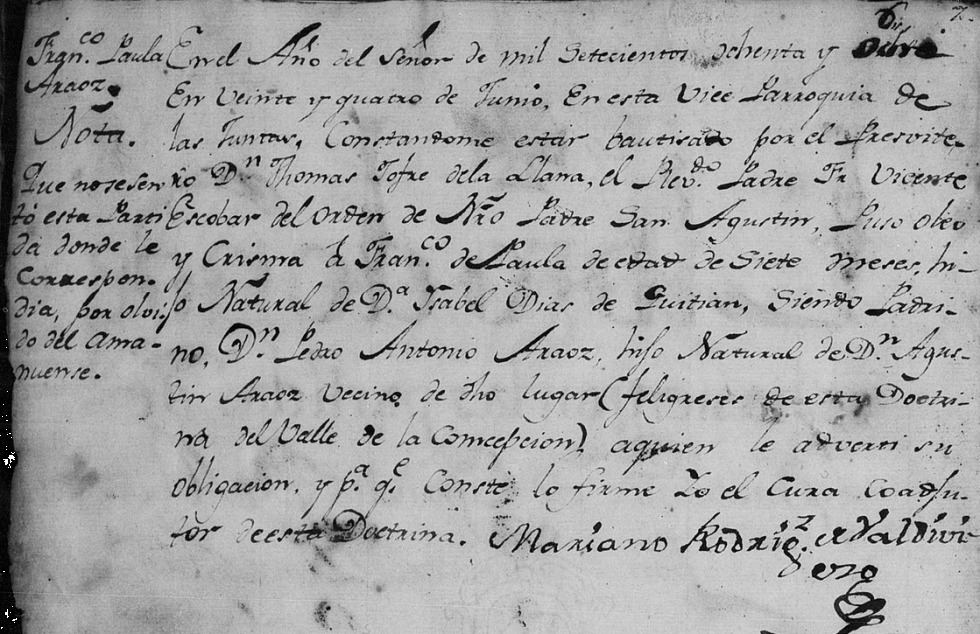 7
Fran.co Paula
Araoz.
Nota.
Que no se sen
tó esta Parti
da donde le
Correspon-
dia, por olvi-
do del ama-
nuense.
En el Año del Señor de mil Setecientos ochenta y
En Veinte y quatro de Junio, En esta Vice Parroquia de
las Juntas, Constandome estar bautisado por el Presvite-
ro Dn Thomas Jofre dela Llana, el Revdo Padre Fr Vicente
Escobar del orden de Nro Padre San Agustin, Puso oleo
y Crisma à Fran.co de Paula de edad de Siete meses, hi-
jo Natural de Da Ysabel Dias de Quitian, Siendo Padri-
no, Dn Pedro Antonio Araoz, hijo Natural de Dn Agus-
tin Araoz Vecino de dho lugar (feligreses de esta Doctri-
na del Valle de la Concepcion) aquien le adverti su
obligacion, y pa qe Conste lo firme Yo el Cura Coadju-
tor de esta Doctrina. Mariano Rodrigz. Valdivi
ezo